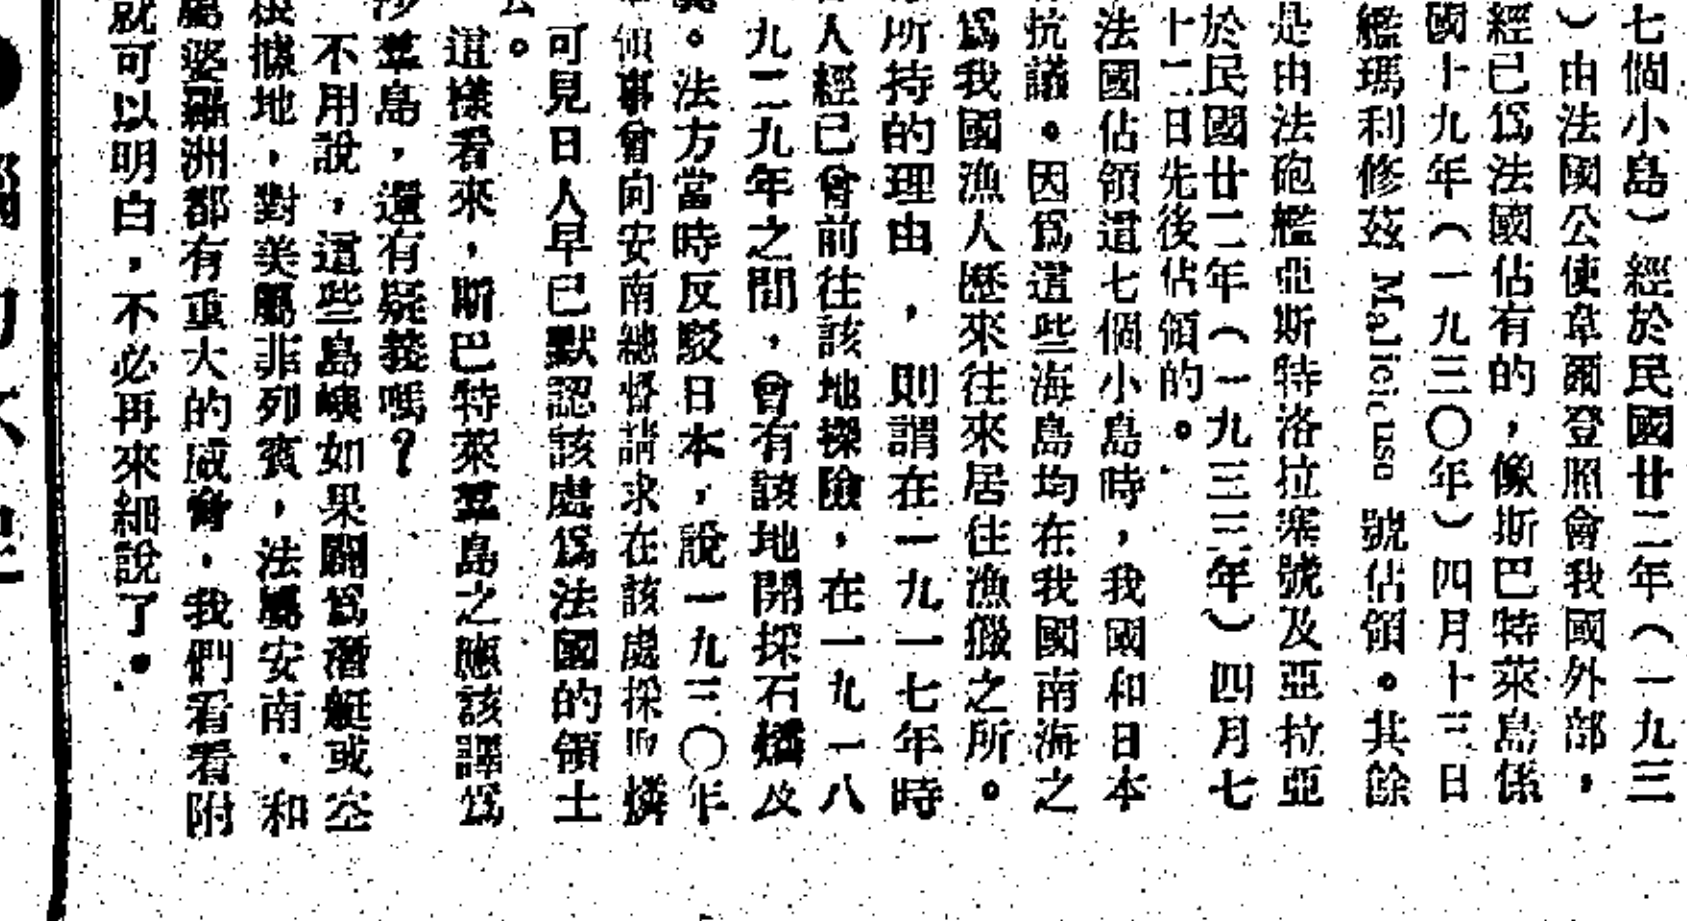 七個小島）經於民國廿二年（一九三
）由法國公使韋爾登照會我國外部，
經已爲法國佔有的，像斯巴特萊島係
國十九年（一九三〇年）四月十三日
艦瑪利修茲 Malicieuse 號佔領。其餘
是由法砲艦亞斯特洛拉塞號及亞拉亞
於民國廿二年（一九三三年）四月七
十二日先後佔領的。
法國佔領這七個小島時，我國和日本
抗議。因爲這些海島均在我國南海之
爲我國漁人歷來往來居住漁獵之所。
所持的理由，則謂在一九一七年時
人經已曾前往該地探險，在一九一八
九二九年之間，曾有該地開採石燐及
。法方當時反駁日本，說一九三〇年
領事曾向安南總督請求在該處採取燐
可見日人早已默認該處爲法國的領土
。
這樣看來，斯巴特萊羣島之應該譯爲
沙羣島，還有疑義嗎？
不用說，這些島嶼如果闢爲潛艇或空
根據地，對美屬菲列賓，法屬安南，和
屬婆羅洲都有重大的威脅，我們看看附
就可以明白，不必再來細說了。